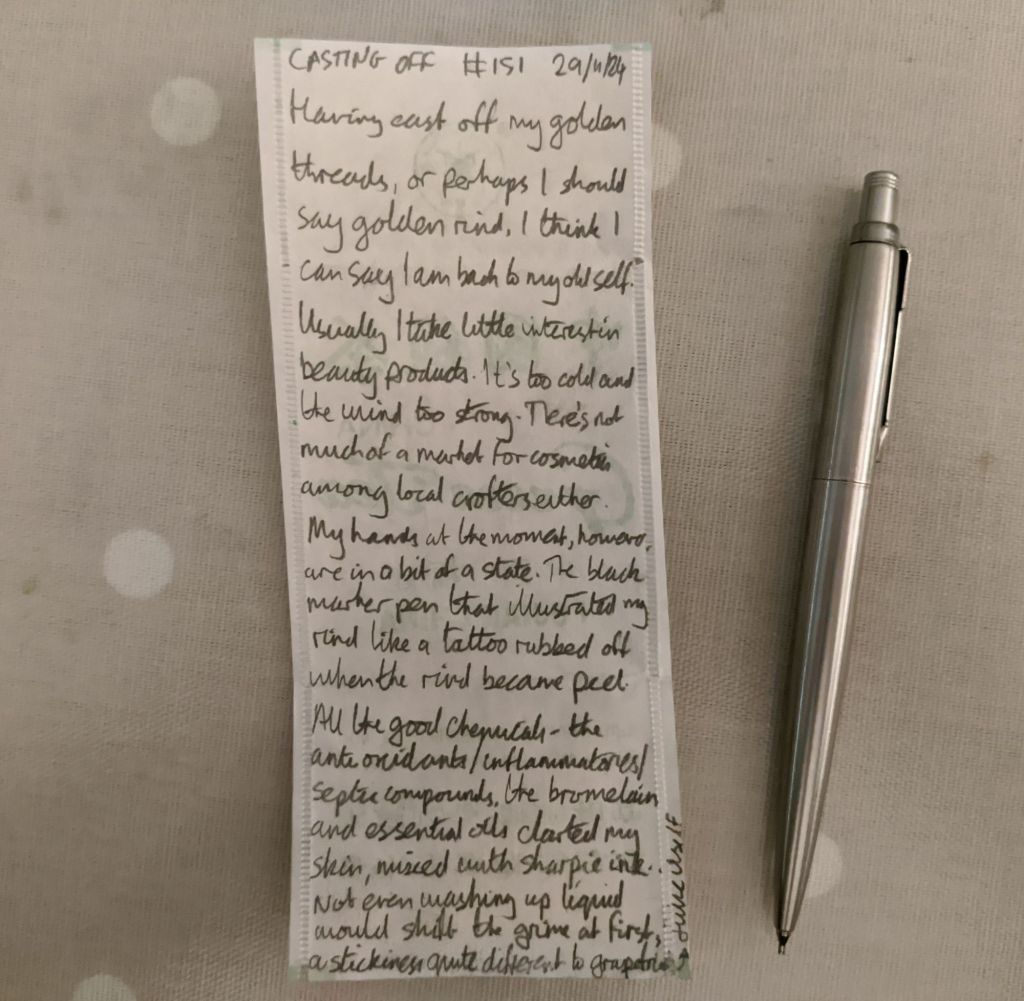 CASTING OFF #151 29/11/24
Having cast off my golden
threads, or perhaps I should
say golden rind, I think I
can say I am back to my old self.
Usually I take little interest in
beauty products. It's too cold and
the wind too strong. There's not
much of a market for cosmetics
among local crofters either.
My hands at the moment, however,
are in a bit of a state. The black
marker pen that illustrated my
rind like a tattoo rubbed off
when the rind became peel.
All the good chemicals - the
anti oxidants/inflammatories/
septic compounds, the bromelain
and essential oils clarted my
skin, mixed with sharpie ink.
Not even washing up liquid
would shift the grime at first,
a stickiness quite different to grapefruit
juice itself